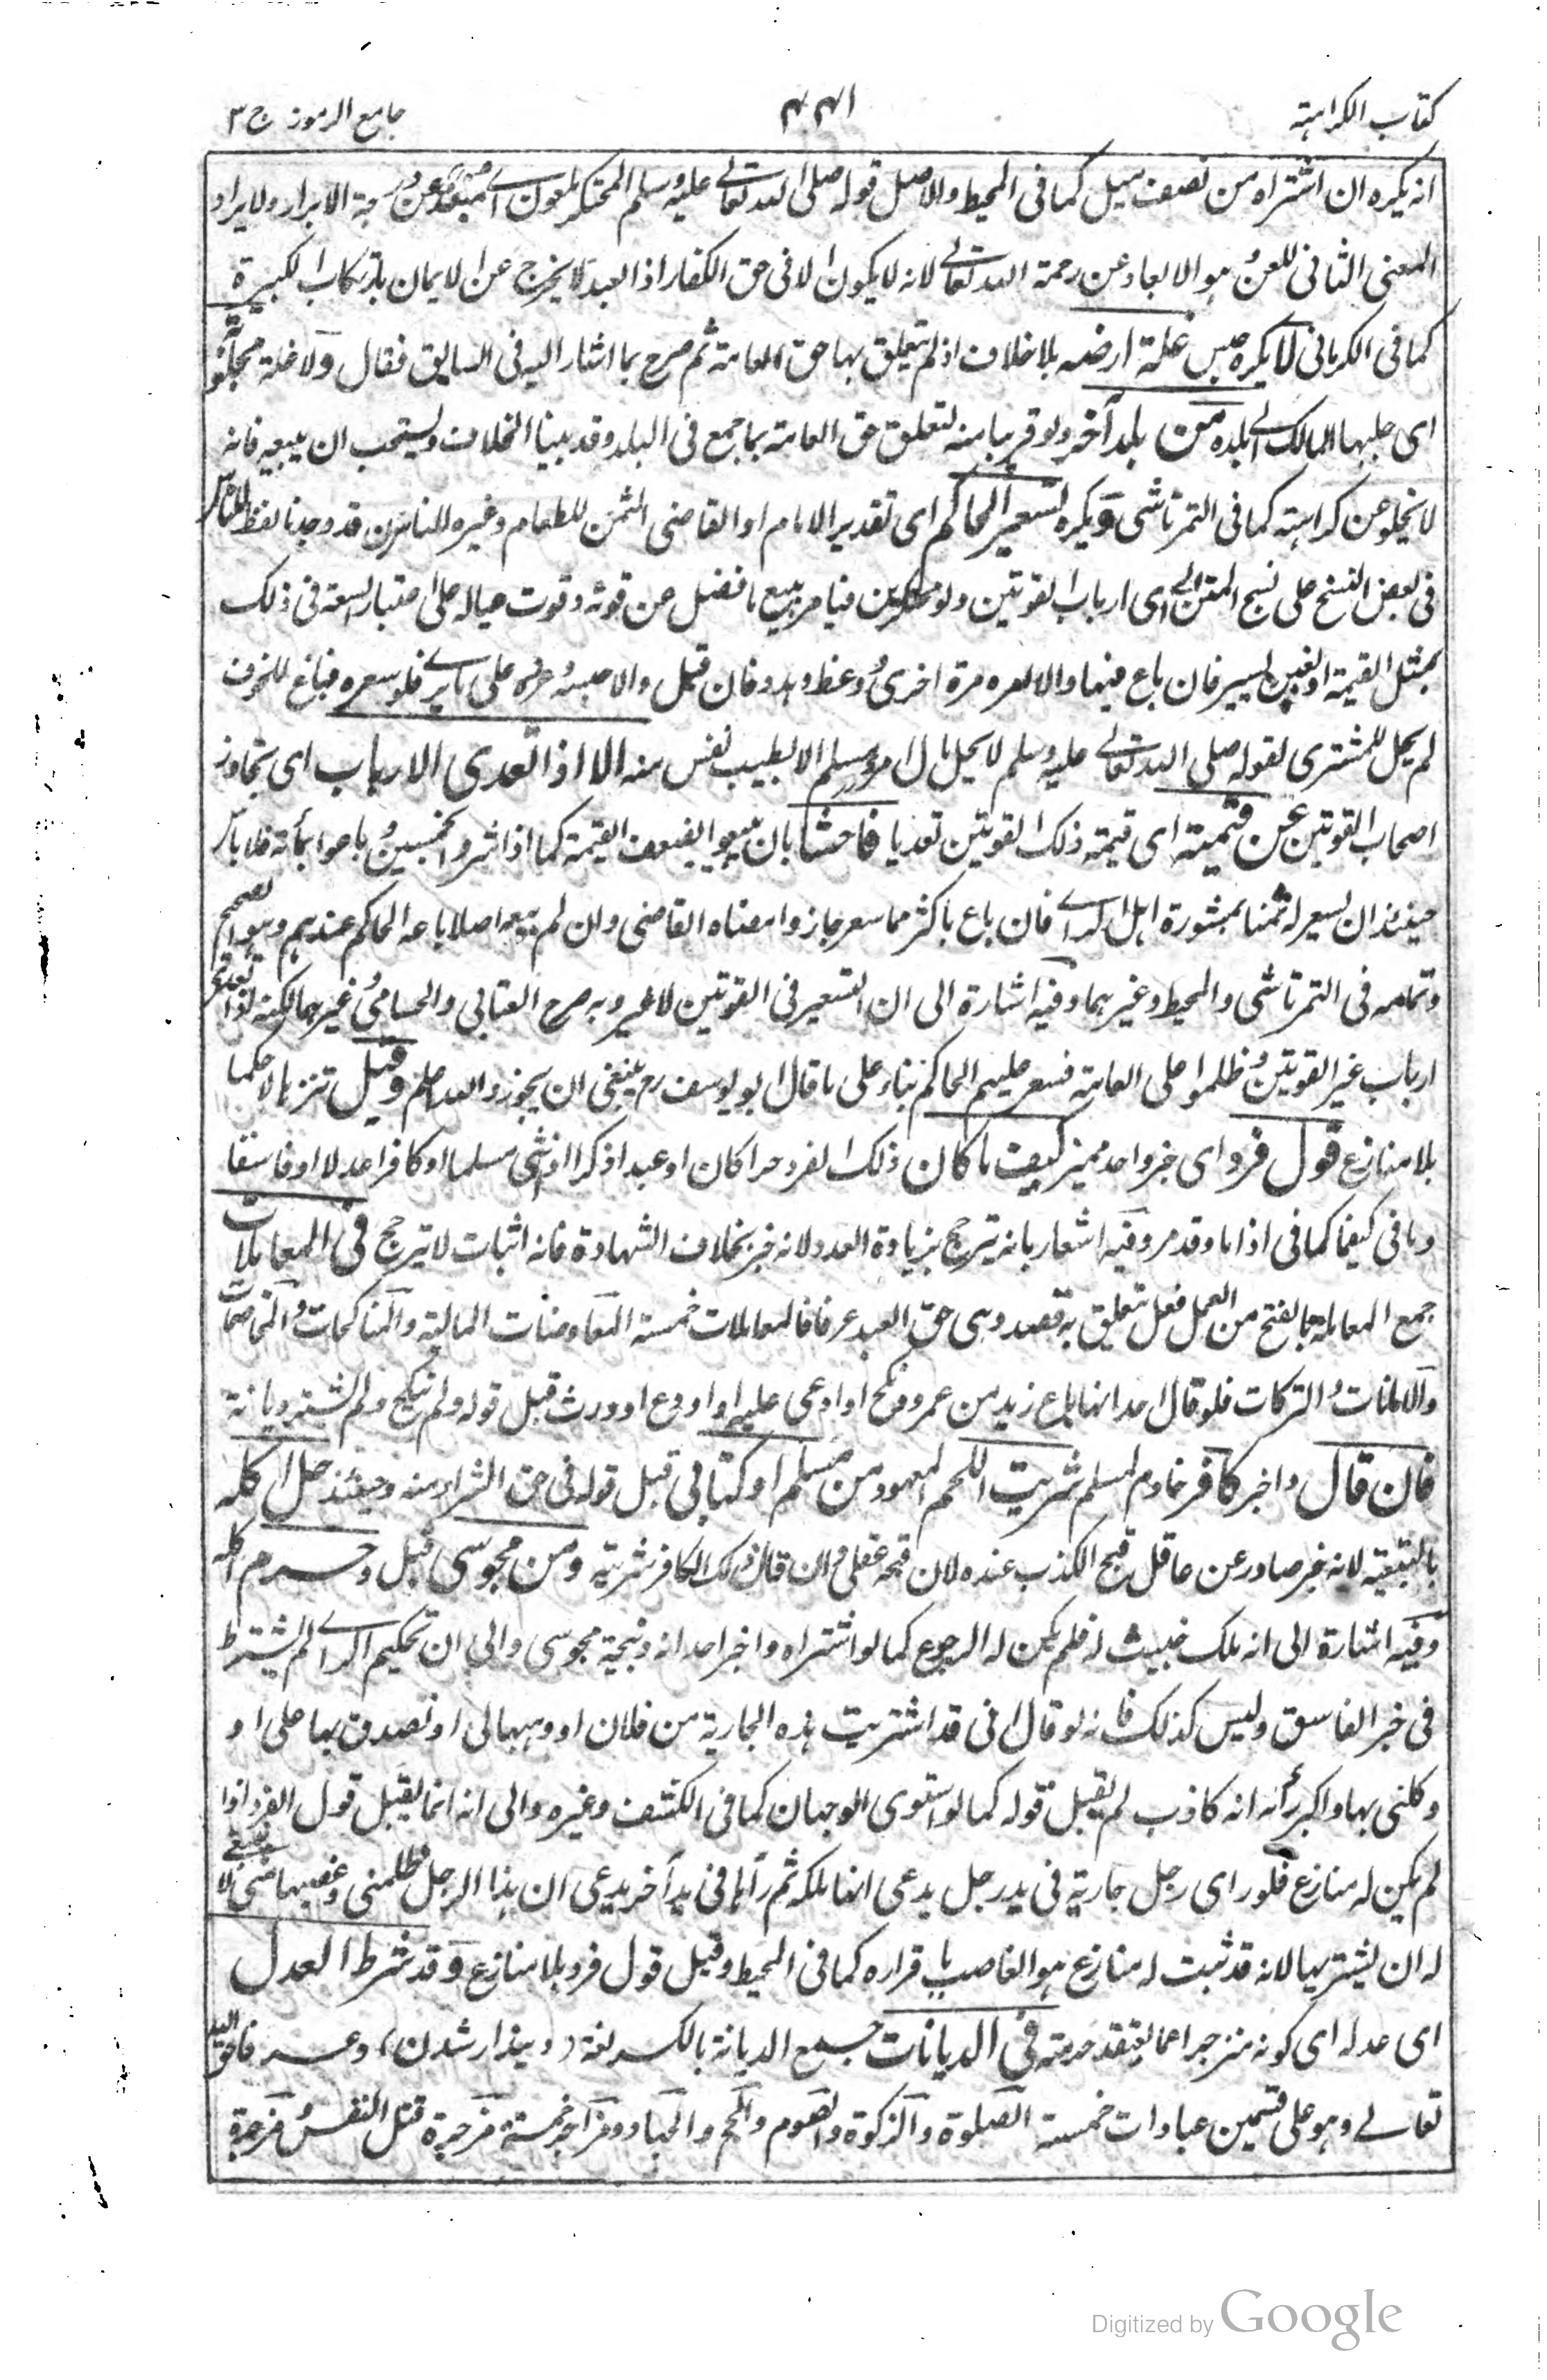 كتاب الكراهية
٤٤١
جامع الرموز ج ٣
انه يكره ان اشتراه من نصف ميل كما فى المحيط والاصل قوله صلى الله تعالى عليه وسلم المحتكر ملعون اى مبعد عن درجة الابرار ولا يراد
المعنى الثانى للعن وهو الابعاد عن رحمة الله تعالى لانه لا يكون الا فى حق الكفار اذ العبد لا يخرج عن الايمان بارتكاب الكبيرة
كما فى الكرمانى لا يكره حبس غلة ارضه بلا خلاف اذ لم يتعلق بها حق العامة ثم صرح بما اشار اليه فى السابق فقال ولا غلة مجلوبة
اى جلبها المالك الى بلده من بلد آخر ولو قريبا منه لتعلق حق العامة بما جمع فى البلد وقد بينا الخلاف ويستحب ان يبيعه فانه
لا يخلو عن كراهته كما فى التمرتاشى ويكره تسعير الحاكم اى تقدير الامام او القاضى الثمن للطعام وغيره للناس قد وجدنا لفظ للناس
فى بعض النسخ على نسج المقن الى اى ارباب القوتين ولو محتكرين فيأمر ببيع ما فضل عن قوته وقوت عياله على اعتبار السعة فى ذلك
بمثل القيمة او بغبن يسير فان باع فبها والا امره مرة اخرى ووعظ وهدد فان قبل والا حبسه وعزره على ما يرى فلو سعره فباع للخوف
لم يحل للمشترى لقوله صلى الله تعالى عليه وسلم لا يحل مال امرء مسلم الا بطيب نفس منه الا اذا تعدى الارباب اى تجاوز
اصحاب القوتين عن قيمته اى قيمة ذلك القوتين تعديا فاحشا بان يبيعوا بضعف القيمة كما اذا اشتروا بخمسين وباعوا بمأته فلا باس
حينئذ ان يسعر له ثمنا بمشورة اهل الراى فان باع باكثر مما سعر جاز وامضاه القاضى وان لم يبعه اصلا باعه الحاكم عندهم وهو الصحيح
وتمامه فى التمرتاشى والمحيط وغيرهما وفيه اشارة الى ان التسعير فى القوتين لا غير وبه صرح العتابى والحسامى وغيرهما لكنه لو تعدى
ارباب غير القوتين وظلموا على العامة فسعر عليهم الحاكم بناء على ما قال ابو يوسف رح ينبغى ان يجوز والله اعلم وقيل تنزيها لا حكما
بلا منازع قول فرد اى خبر واحد مميز كيف ما كان ذلك الفرد حرا كان او عبدا ذكرا او انثى مسلما او كافرا عدلا او فاسقا
وما فى كيفما كما فى اذا ما وقد مر وفيه اشعار بانه يترجح بزيادة العدد لانه خبر بخلاف الشهادة فانه اثبات لا ترجح فى المعاملات
جمع المعاملة بالفتح من العمل فعل يتعلق به قصد وهى حق العبد عرفا فالمعاملات خمسة المعاوضات المالية والمناكحات والمخاصمات
والامانات والتركات فلو قال احد انها باع زيد من عمرو ونكح او ادعى عليه او اودع او ورث قبل قوله ولم ينكح ولم يشتر ديانة
فان قال واخبر كافر خادم لمسلم شريت اللحم المعهود من مسلم او كتابى قبل قوله فى حق الشراء منه وحينئذ حل اكله
بالتبعية لانه خبر صادر عن عاقل قبح الكذب عنده لان قبحه عقلى وان قال ذلك الكافر شريته من مجوسى قبل وحرم اكله
وفيه اشارة الى انه ملك خبيث له فلم يكن له الرجوع كما لو اشتراه واخبر احد انه ذبيحة مجوسى والى ان تحكيم الراى لم يشترط
فى خبر الفاسق وليس كذلك فانه لو قال انى قد اشتريت هذه الجارية من فلان او وهبها لى او تصدق بها على او
وكلنى بها واكبر رأئه انه كاذب لم يقبل قوله كما لو استوى الوجهان كما فى الكشف وغيره والى انه انما يقبل قول الفرد اذا
لم يكن له منازع فلو راى رجل جارية فى يد رجل يدعى انها ملكه ثم رآها فى يد آخر يدعى ان هذا الرجل ظلمنى وغصبها منى لا ينبغى
له ان يشتريها لانه قد ثبت له منازع هو الغاصب باقراره كما فى المحيط وقبل قول فرد بلا منازع وقد شرط العدل
اى عدله اى كونه منزجرا عما يعتقد حرمته فى الديانات جمع الديانة بالكسر لغة (دیندار شدن) وعرفا حق الله
تعالى وهو على قسمين عبادات خمسة الصلوة والزكوة والصوم والحج والجهاد ومزاجر خمسة مزجرة قتل النفس ومزجرة
Digitized by Google